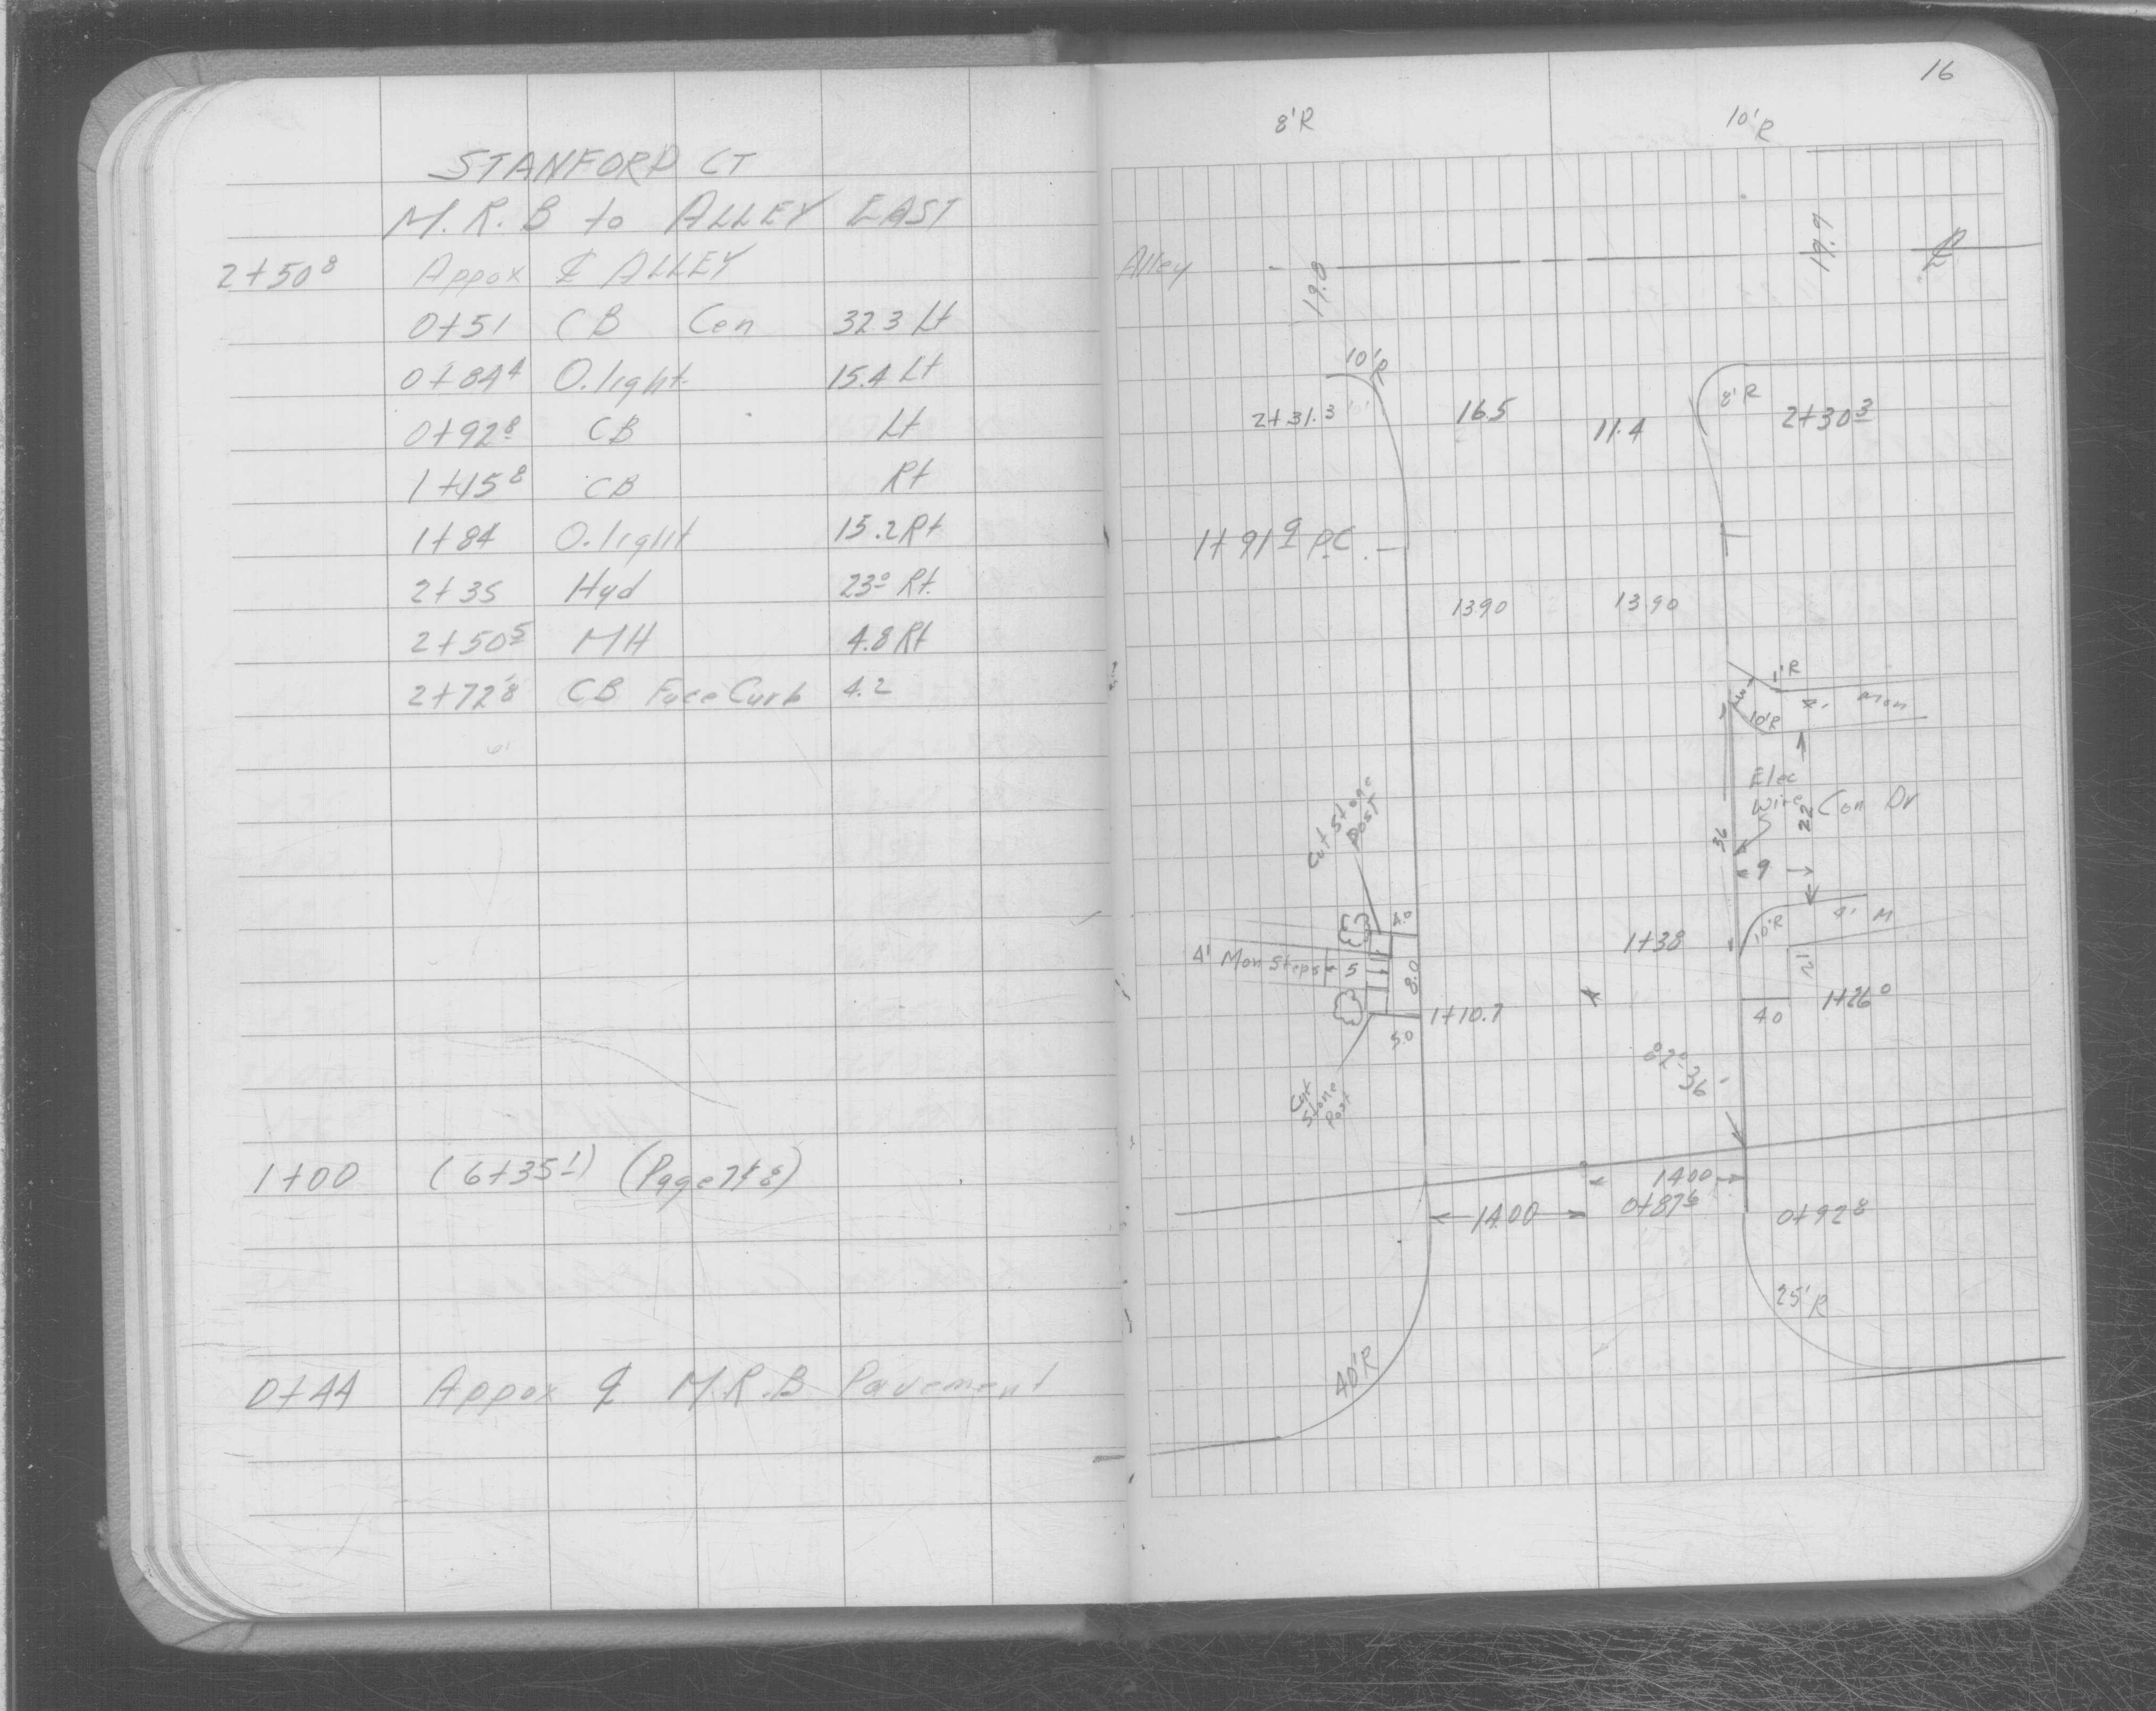 STANFORD CT
M.R.B to ALLEY EAST
2+50⁸ Appox ℄ ALLEY
0+51 CB Cen 32.3 Lt
0+84⁴ O.light 15.4 Lt
0+92⁸ CB Lt
1+15⁸ CB Rt
1+84 O.light 15.2 Rt
2+35 Hyd 23⁰ Rt.
2+50⁵ MH 4.8 Rt
2+72⁸ CB Face Curb 4.2
1+00 (6+35¹) (Page 7&8)
0+44 Appox ℄ M.R.B Pavement
16
8'R 10'R
Alley 19.0 19.9 ℄
10'R
8'R
2+31.3 16.5 11.4 2+30³
1+91⁹ P.C.
13.90 13.90
1'R
4' Mon
10'R
Elec
Wire
Con Dr
22
36
9
Cut Stone
Post
4.0
10'R
4' M
4' Mon Steps 5
8.0
1+38
2'
1+10.7
1+26⁰
5.0
4.0
Cut
Stone
Post
82°
36'
14.00
14.00
0+87⁶
0+92⁸
25'R
40'R